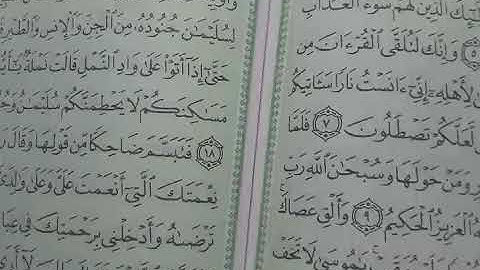 ٱلَّذِينَ لَهُمْ سُوٓءُ ٱلْعَذَابِ
٥ وَإِنَّكَ لَتُلَقَّى ٱلْقُرْءَانَ مِن
لِأَهْلِهِۦٓ إِنِّىٓ ءَانَسْتُ نَارًا سَـَٔاتِيكُم
لَّعَلَّكُمْ تَصْطَلُونَ ٧ فَلَمَّا
وَمَنْ حَوْلَهَا وَسُبْحَٰنَ ٱللَّهِ رَبِّ
ٱلْعَزِيزُ ٱلْحَكِيمُ ٩ وَأَلْقِ عَصَاكَ
يَٰمُوسَىٰ لَا تَخَفْ
لِسُلَيْمَٰنَ جُنُودُهُۥ مِنَ ٱلْجِنِّ وَٱلْإِنسِ وَٱلطَّيْرِ
حَتَّىٰٓ إِذَآ أَتَوْا۟ عَلَىٰ وَادِ ٱلنَّمْلِ قَالَتْ نَمْلَةٌ
مَسَٰكِنَكُمْ لَا يَحْطِمَنَّكُمْ سُلَيْمَٰنُ
١٨ فَتَبَسَّمَ ضَاحِكًا مِّن قَوْلِهَا وَقَالَ
نِعْمَتَكَ ٱلَّتِىٓ أَنْعَمْتَ عَلَىَّ وَعَلَىٰ
تَرْضَىٰهُ وَأَدْخِلْنِى بِرَحْمَتِكَ فِى
لَآ أَرَى